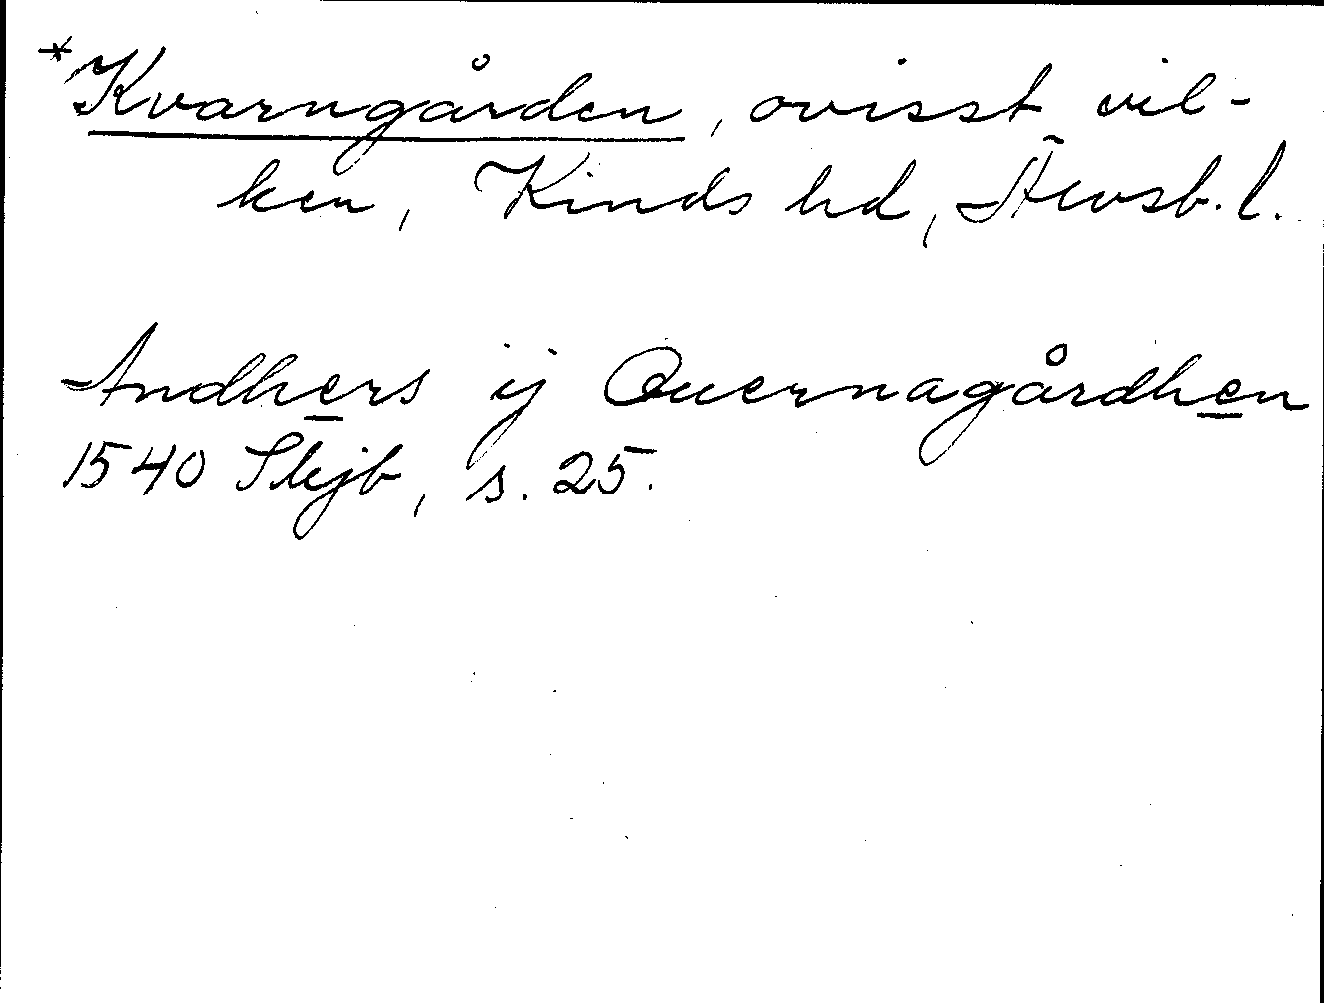 *Kvarngården, ovisst vil-
ken, Kinds hd, Älvsb. l.
Andhers ij Quernagårdhen
1540 Skjb, s. 25.